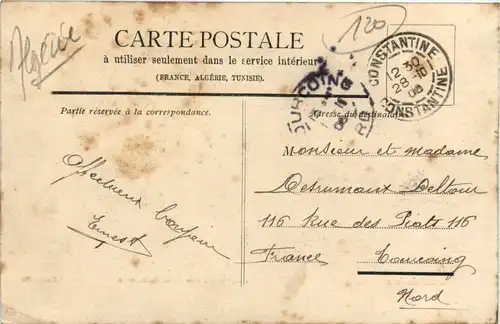 Algérie
120
CARTE POSTALE
à utiliser seulement dans le service intérieur
(FRANCE, ALGÉRIE, TUNISIE).
CONSTANTINE
CONSTANTINE
TOURCOING
Partie réservée à la correspondance.
Adresse du destinataire.
Affectueux bonjour
Ernest
Monsieur et Madame
Destrumaux Deltour
116 Rue des Piats 116
France Tourcoing
Nord